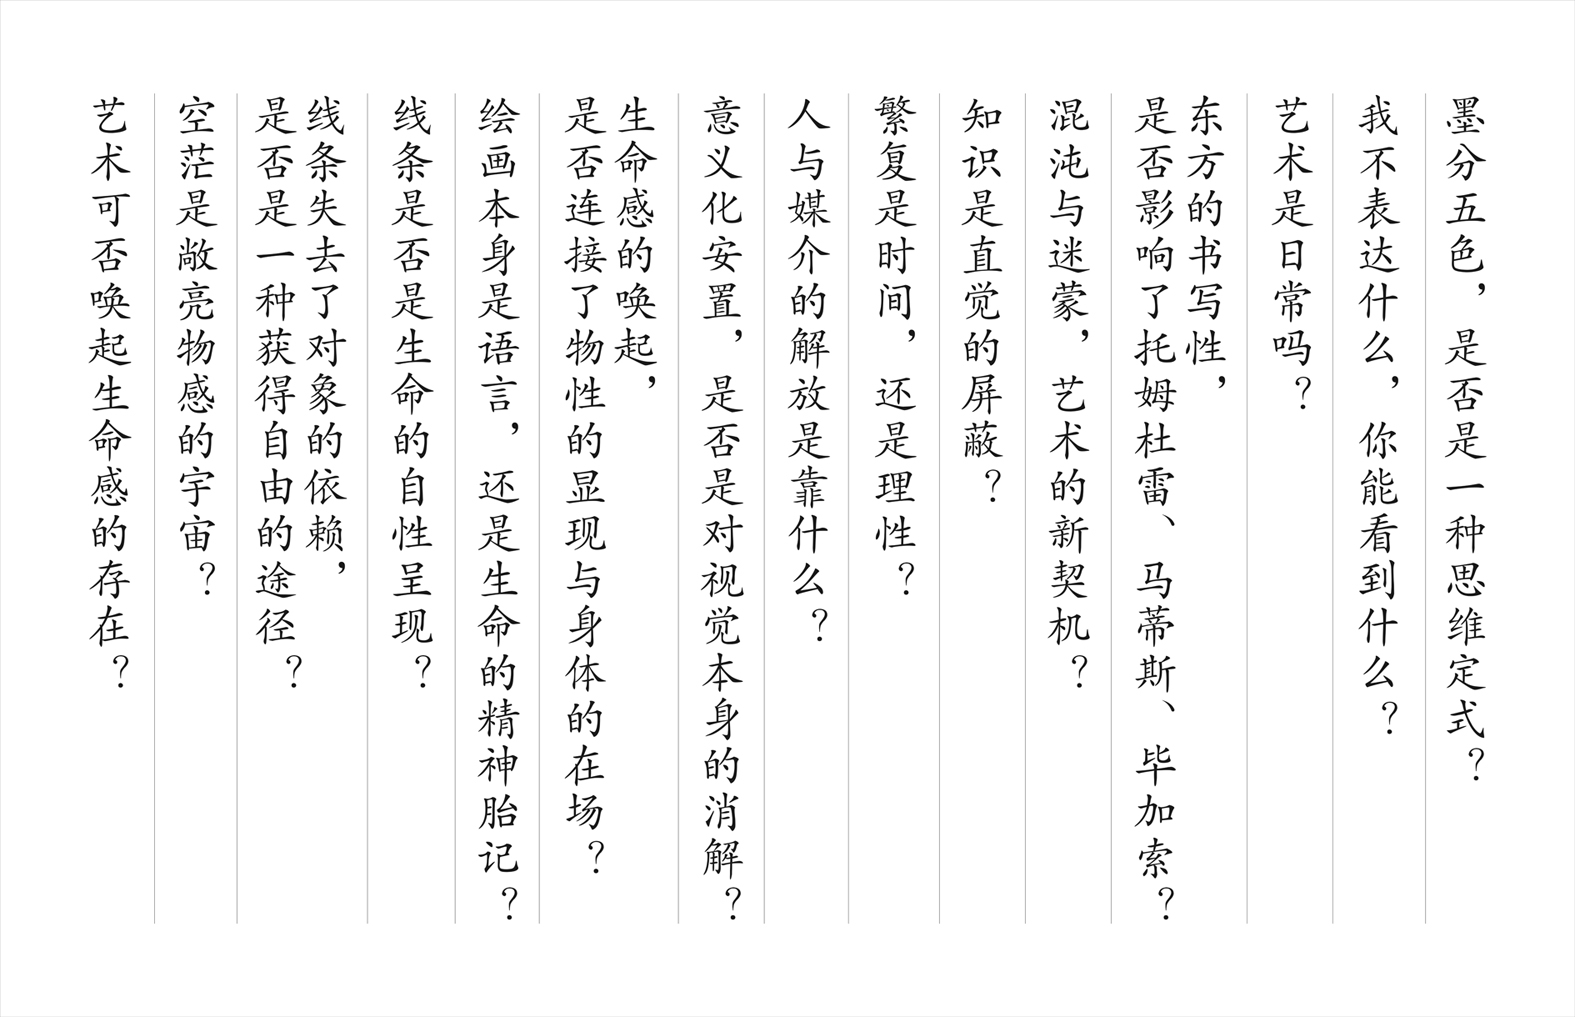 墨分五色，是否是一种思维定式？
我不表达什么，你能看到什么？
艺术是日常吗？
东方的书写性，
是否影响了托姆杜雷、马蒂斯、毕加索？
混沌与迷蒙，艺术的新契机？
知识是直觉的屏蔽？
繁复是时间，还是理性？
人与媒介的解放是靠什么？
意义化安置，是否是对视觉本身的消解？
生命感的唤起，
是否连接了物性的显现与身体的在场？
绘画本身是语言，还是生命的精神胎记？
线条是否是生命的自性呈现？
线条失去了对象的依赖，
是否是一种获得自由的途径？
空茫是敞亮物感的宇宙？
艺术可否唤起生命感的存在？